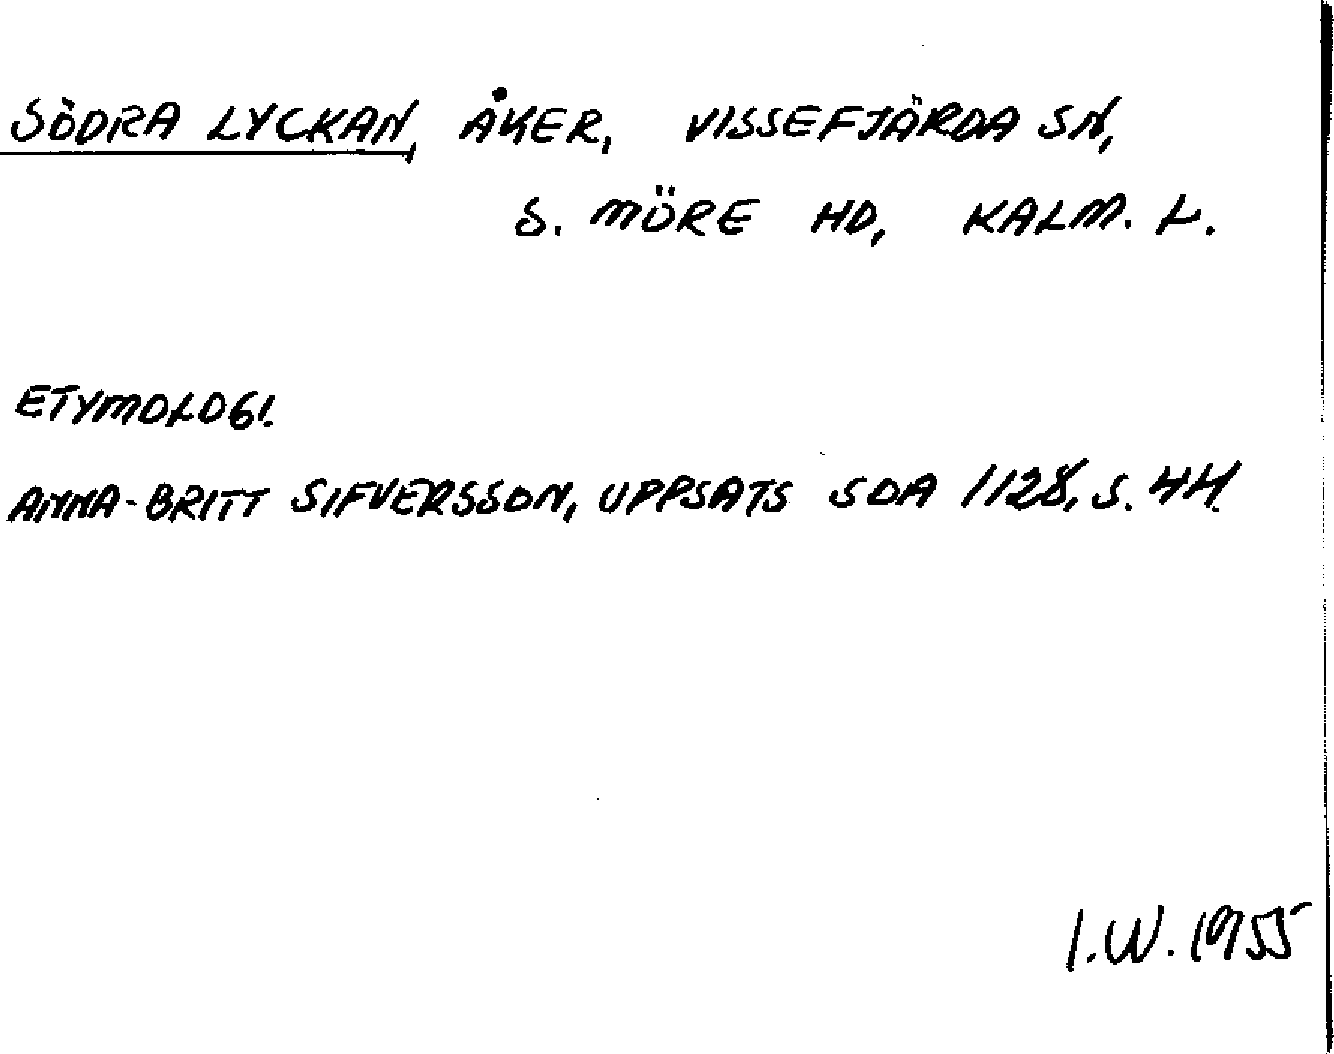 SÖDRA LYCKAN, ÅKER, VISSEFJÄRDA SN,
S. MÖRE HD, KALM. L.
ETYMOLOGI.
ANNA-BRITT SIFVERSSON, UPPSATS SOA 1128, S. 44.
I.W. 1955